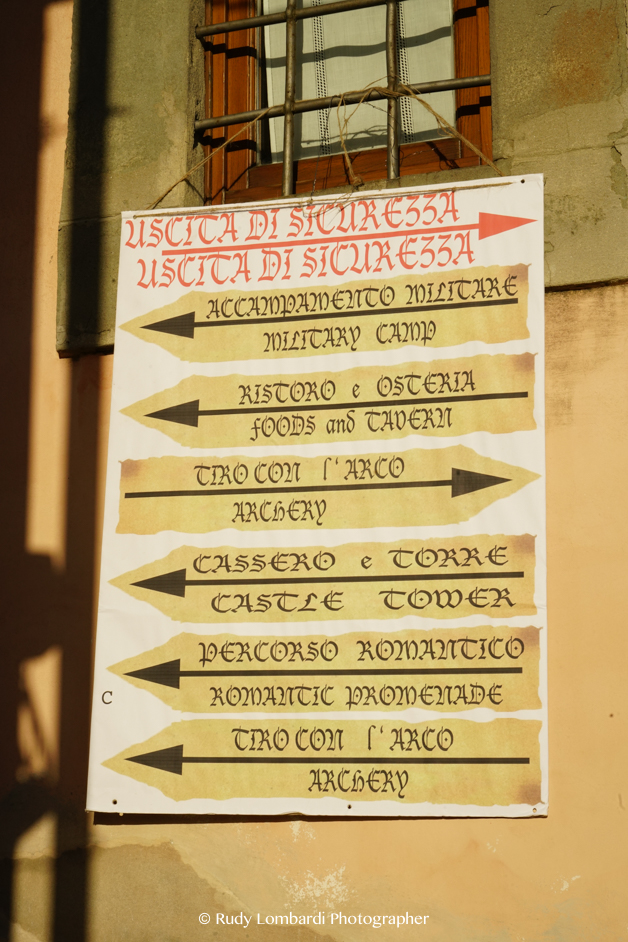 USCITA DI SICUREZZA
USCITA DI SICUREZZA
ACCAMPAMENTO MILITARE
MILITARY CAMP
RISTORO e OSTERIA
FOODS and TAVERN
TIRO CON l'ARCO
ARCHERY
CASSERO e TORRE
CASTLE TOWER
PERCORSO ROMANTICO
ROMANTIC PROMENADE
C
TIRO CON l'ARCO
ARCHERY
© Rudy Lombardi Photographer